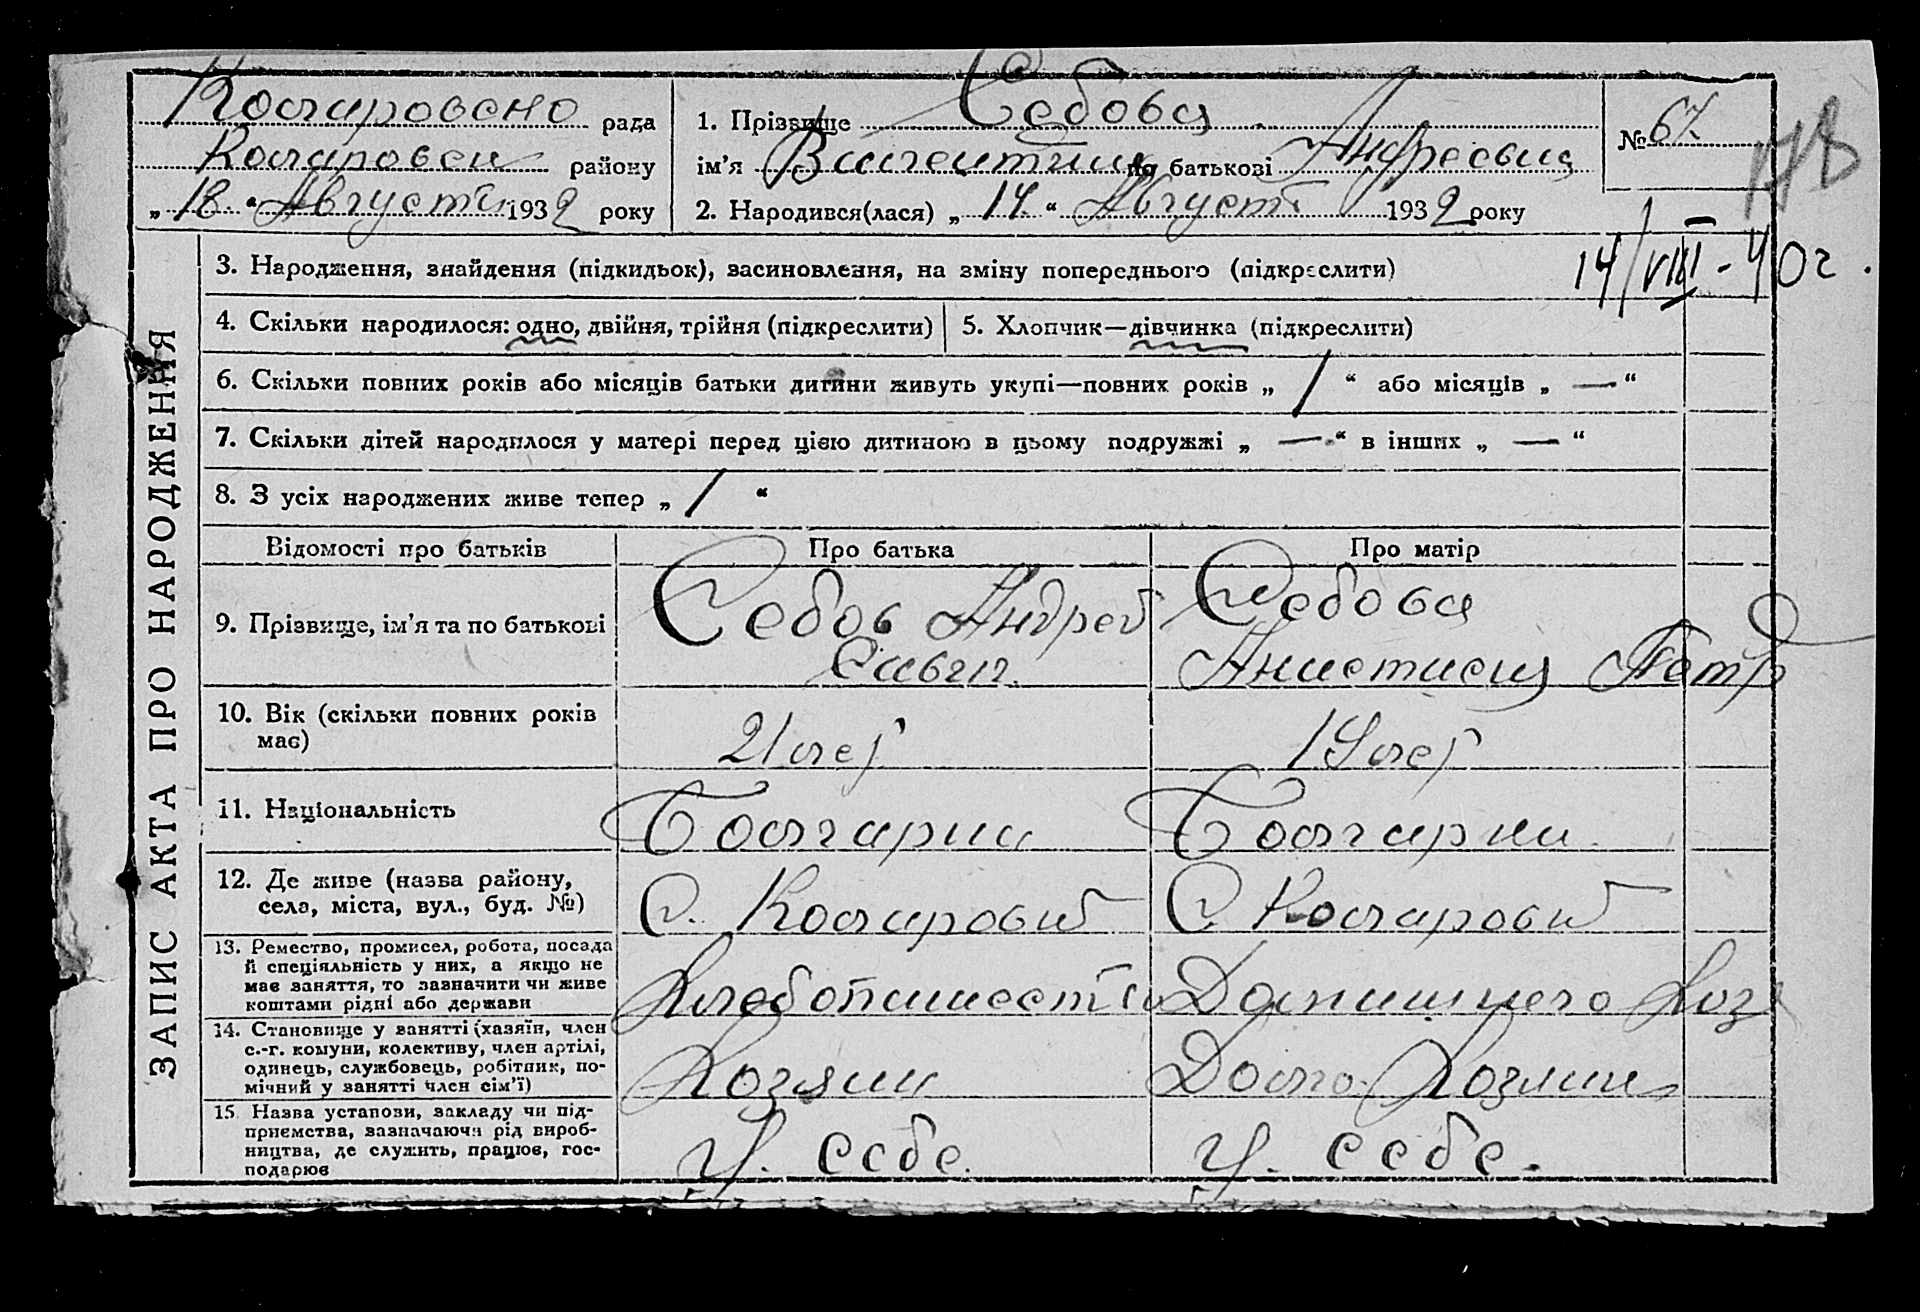 Коларовско рада
Коларовск району
„18“ Августа 1932 року
1. Прізвище Себова
ім’я Валентина по батькові Андреевна
2. Народився(лася) „14“ Август 1932 року
№ 67.
14/VIII-40г.
3. Народження, знайдення (підкидьок), засиновлення, на зміну попереднього (підкреслити)
4. Скільки народилося: одно, двійня, трійня (підкреслити)
5. Хлопчик—дівчинка (підкреслити)
6. Скільки повних років або місяців батьки дитини живуть укупі—повних років „1“ або місяців „—“
7. Скільки дітей народилося у матері перед цією дитиною в цьому подружжі „—“ в інших „—“
8. З усіх народжених живе тепер „1“
ЗАПИС АКТА ПРО НАРОДЖЕННЯ
Відомості про батьків
Про батька
Про матір
9. Прізвище, ім’я та по батькові
Себов Андрей
Савич.
Себова
Анастасия Петр
10. Вік (скільки повних років
має)
21 лет
19 лет
11. Національність
Болгарин
Болгарка
12. Де живе (назва району,
села, міста, вул., буд. №)
С. Коларовка
С. Коларовка
13. Ремество, промисел, робота, посада
й спеціяльність у них, а якщо не
має заняття, то зазначити чи живе
коштами рідні або держави
Хлебопашество
Домашнего Хоз
14. Становище у занятті (хазяїн, член
с.-г. комуни, колективу, член артілі,
одинець, службовець, робітник, по-
мічний у занятті член сім’ї)
Хозяин
Домо. Хозяин
15. Назва установи, закладу чи під-
приємства, зазначаючи рід вироб-
ництва, де служить, працює, гос-
подарює
У. себе.
У. себе.